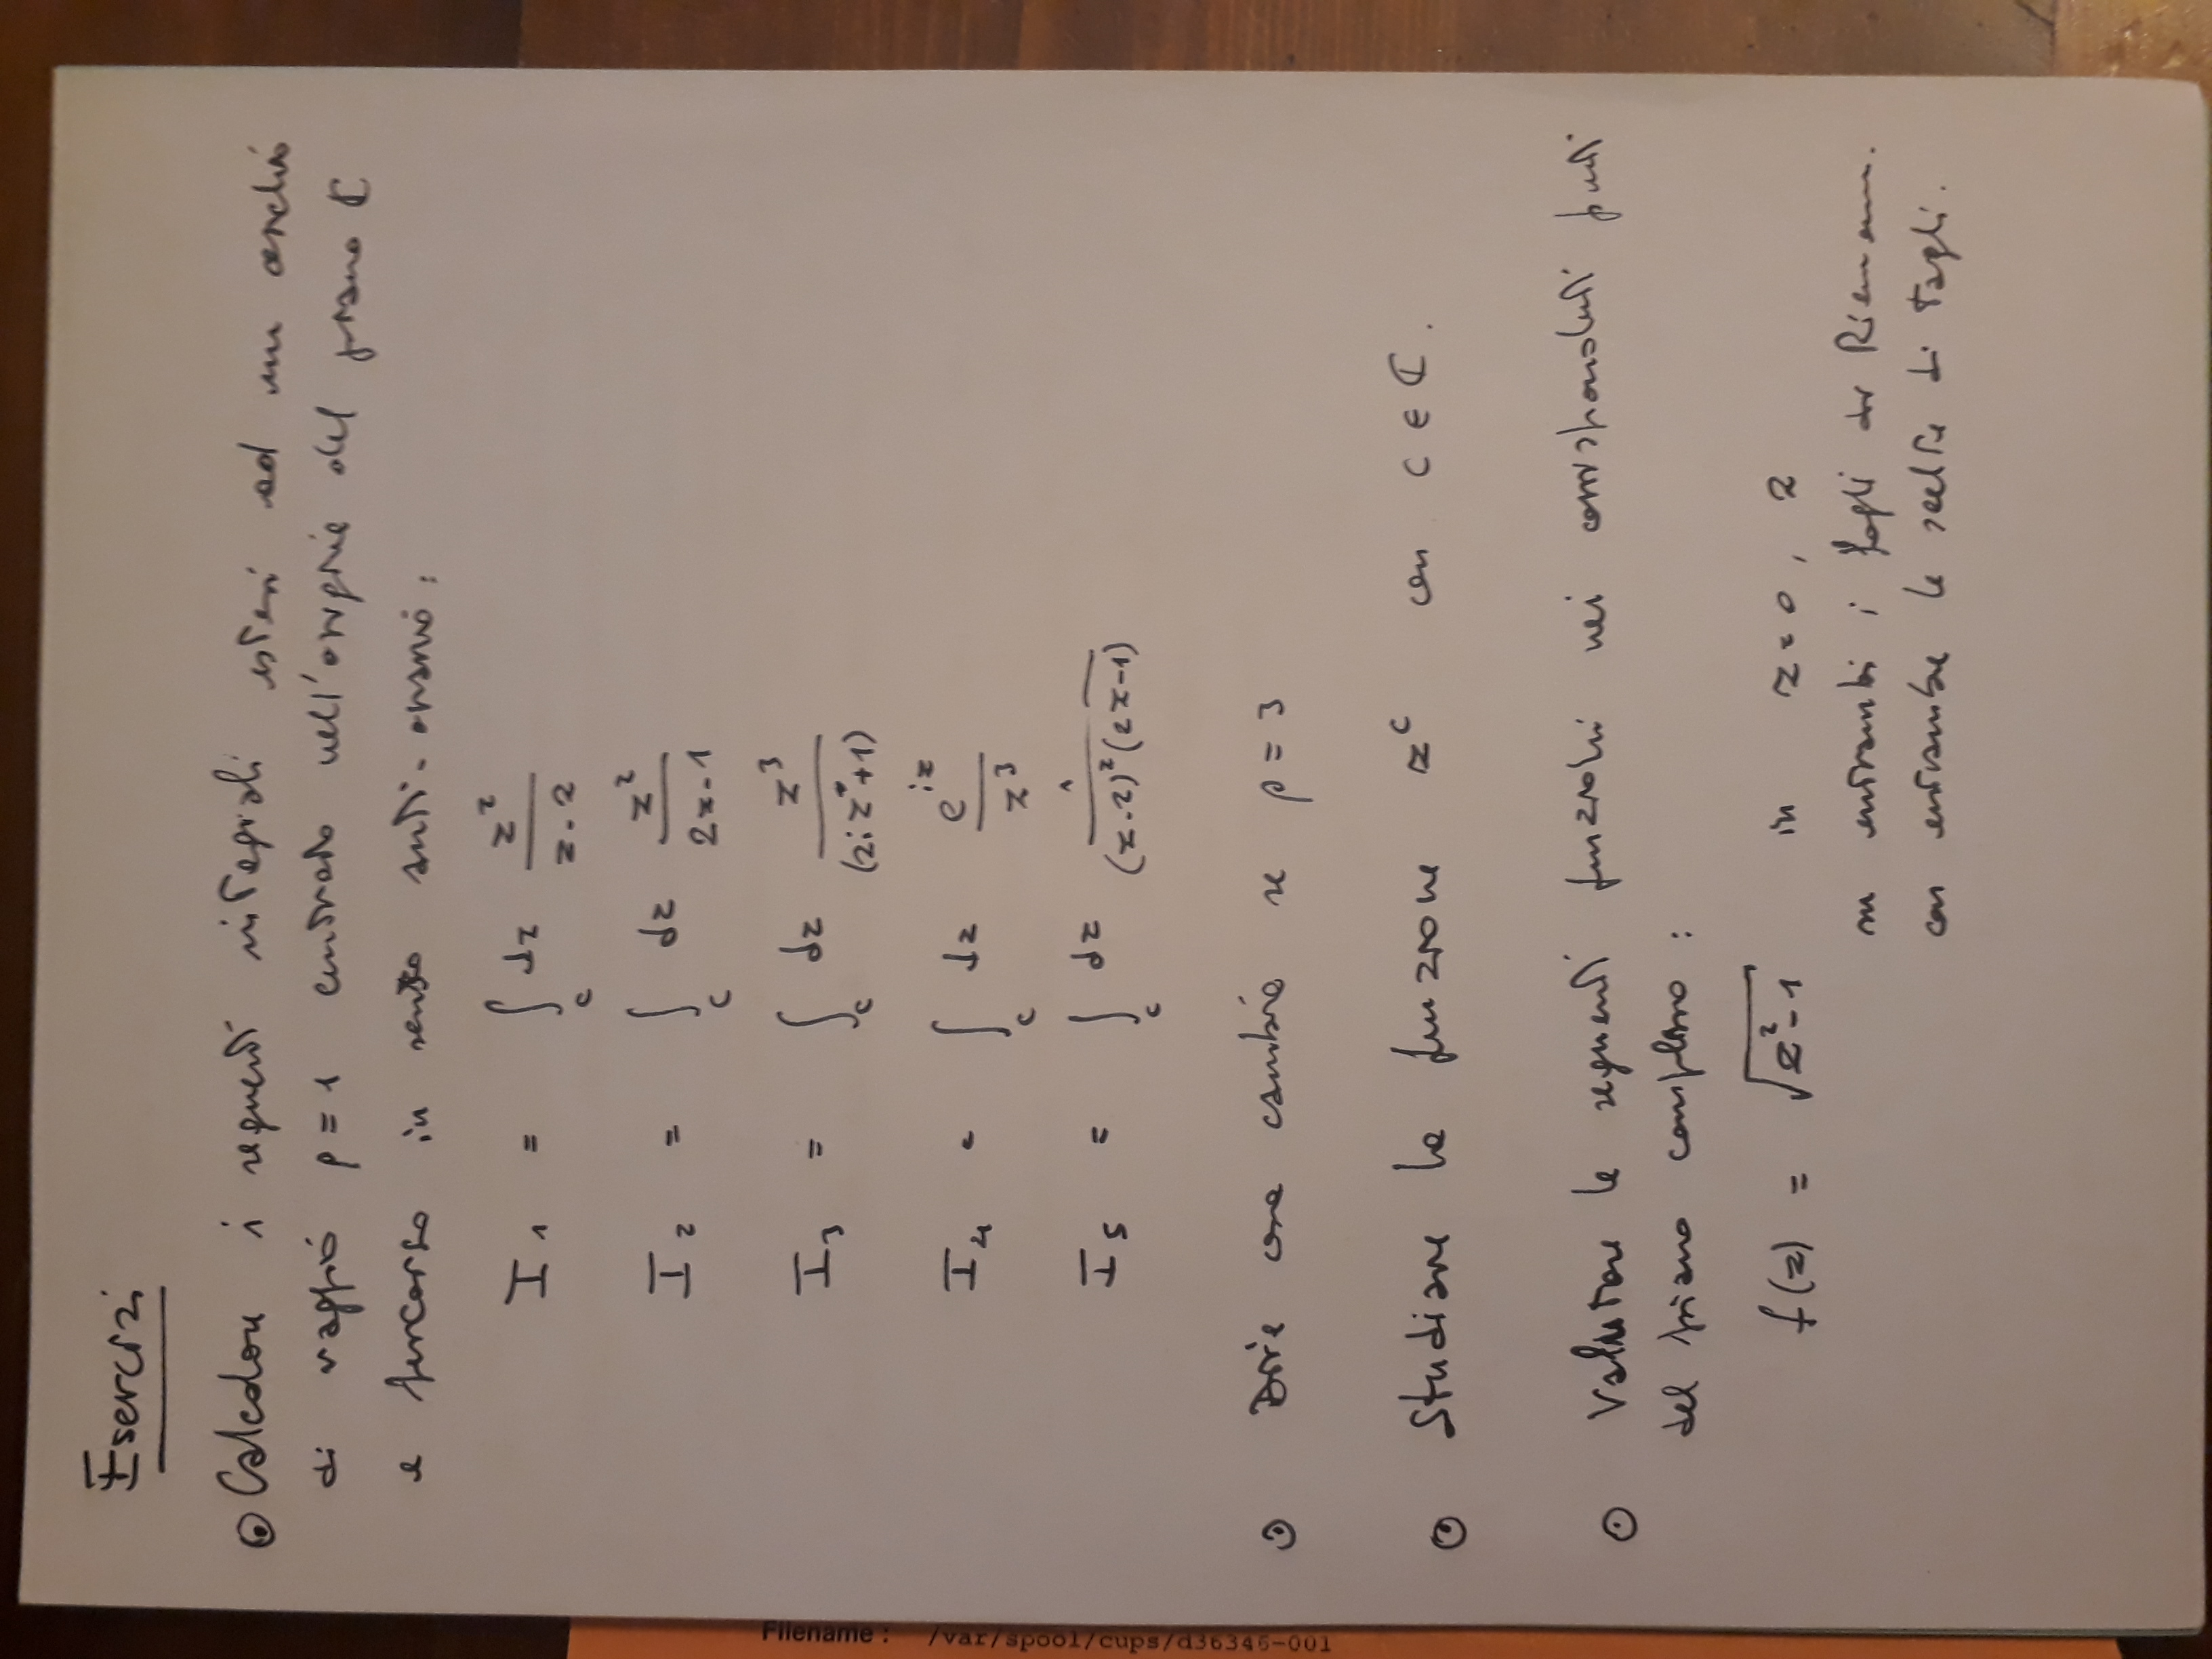 Esercizi
⊙ Calcolare i seguenti integrali estesi ad un cerchio
di raggio ρ = 1 centrato nell'origine del piano ℂ
e percorso in senso anti-orario:
I₁ = ∫_C dz z²/(z-2)
I₂ = ∫_C dz z²/(2z-1)
I₃ = ∫_C dz z³/(2iz+1)
I₄ = ∫_C dz e^{iz}/z³
I₅ = ∫_C dz 1/((z-2)²(2z-1))
⊙ Dire come cambia se ρ = 3
⊙ Studiare la funzione z^c con c ∈ ℂ.
⊙ Valutare le seguenti funzioni nei corrispondenti punti
del piano complesso:
f(z) = √(z²-1) in z=0, 2
su entrambi i fogli di Riemann.
con entrambe le scelte di tagli.
Filename: /var/spool/cups/d36346-001